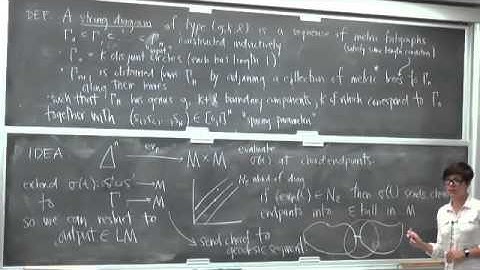 DEF. A string diagram of type (g,k,l) is a sequence of metric fatgraphs
Γ₀ ⊂ Γ₁ ⊂ ... ⊂ Γₙ constructed inductively (satisfy some length condition)
"input"
· Γ₀ = k disjoint circles (each has length 1)
· Γₙ₊₁ is obtained from Γₙ by adjoining a collection of metric trees to Γₙ
along their leaves
such that Γₙ has genus g, k+l boundary components, k of which correspond to Γ₀
together with (s₁, s₂, ..., sₙ) ∈ [0,1]ⁿ "spacing parameter"
IDEA
Δⁿ → M × M
evaluate
σ(t) at chord endpoints.
extend σ(t): S¹ ∪ S¹ → M
to Γ → M
so we can restrict to
output ∈ LM
Nε nbhd of diag
if ∈ Nε then σ(t) sends chord
endpoints into ε ball in M
send chord to
geodesic segment